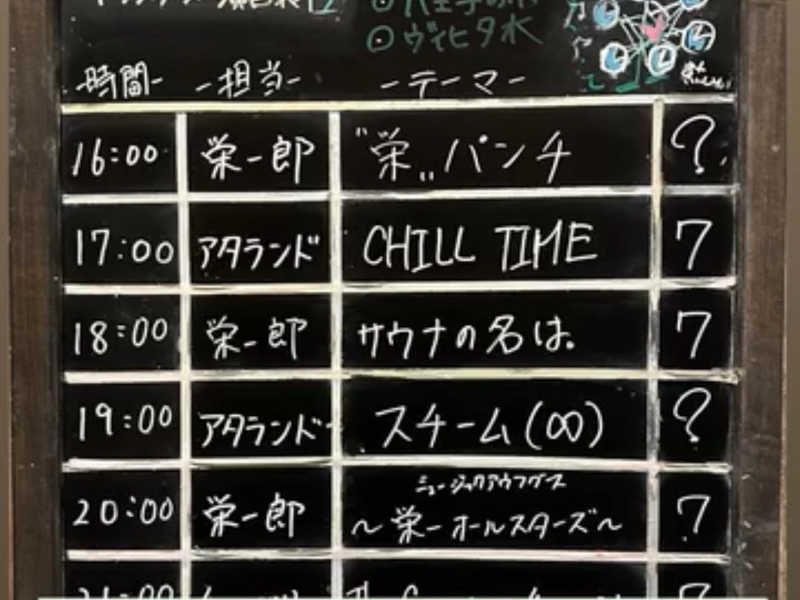 ◎ ヴィヒタ水
-時間- -担当- -テーマ-
16:00 栄一郎 "栄„パンチ ?
17:00 アタランド CHILL TIME 7
18:00 栄一郎 サウナの名は。 7
19:00 アタランド スチーム(∞) ?
ミュージックアウフグース
20:00 栄一郎 〜栄一オールスターズ〜 7
21:00